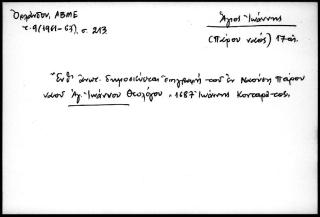 Ὀρλάνδου, ΑΒΜΕ
τ. 9 (1961-63), σ. 213
Ἅγιος Ἰωάννης
(Πάρου ναός) 17 αἰ.
Ἔνθ' ἀνωτ. δημοσιεύεται ἐπιγραφή τοῦ ἐν Ναούσῃ Πάρου
ναοῦ Ἁγ. Ἰωάννου Θεολόγου. 1687 Ἰωάννης Κονταρᾶτος.